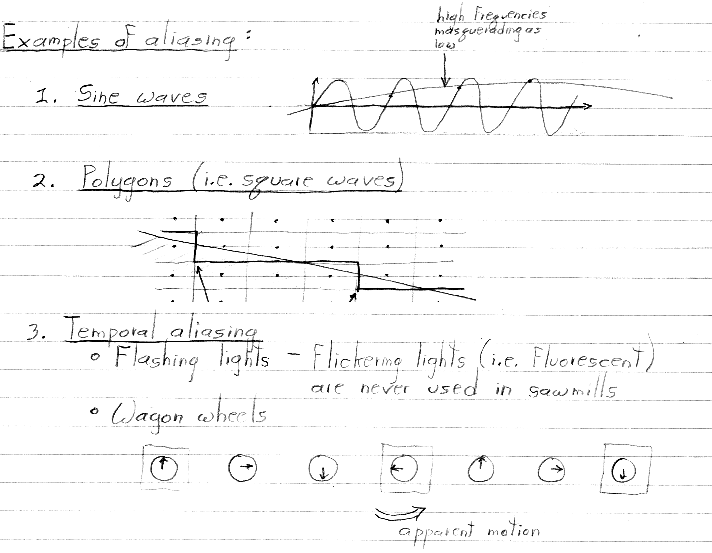 high frequencies
masquerading as
low
Examples of aliasing:
1. Sine waves
2. Polygons (i.e. square waves)
3. Temporal aliasing
o Flashing lights - Flickering lights (i.e. Fluorescent)
are never used in sawmills
o Wagon wheels
apparent motion